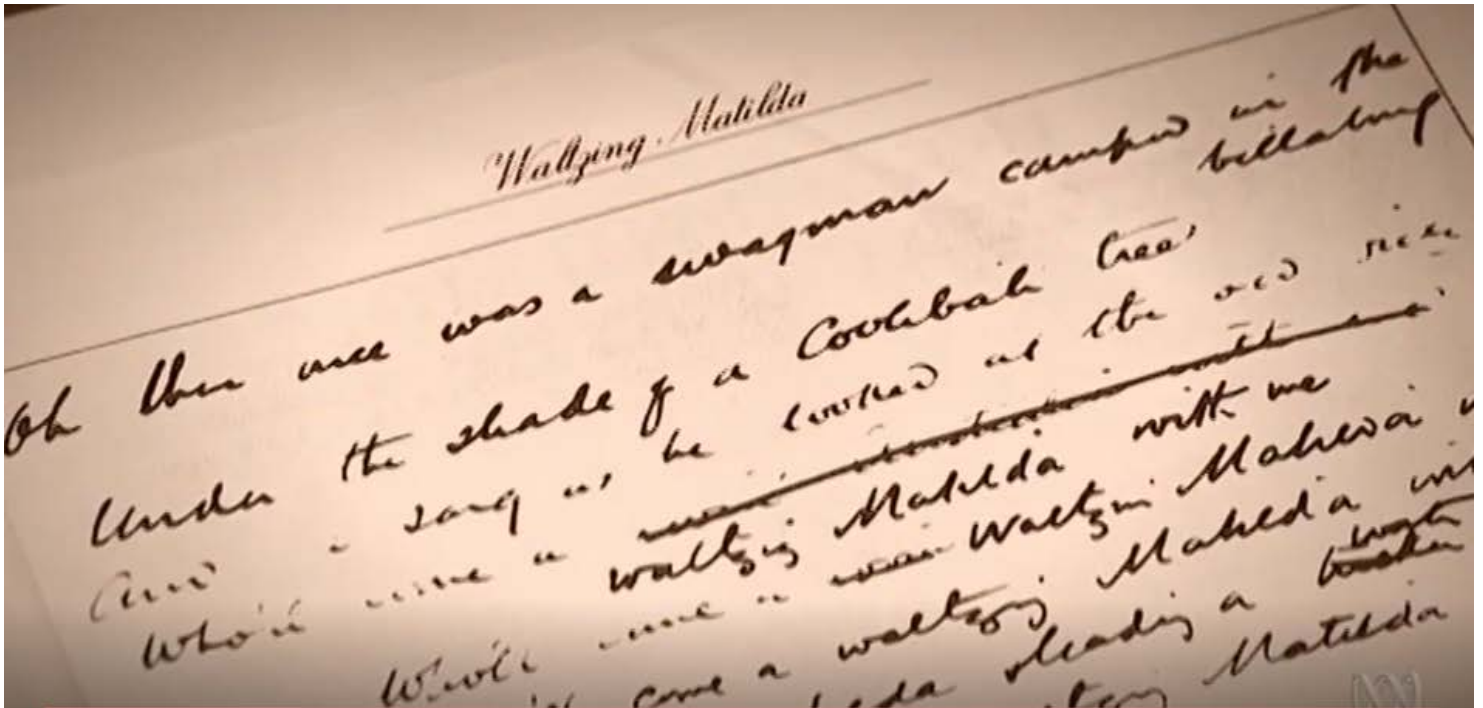 Waltzing Matilda
Oh there once was a swagman camped in the
billabong
Under the shade of a Coolibah tree
And he sang as he looked at the old
Who'll come a
waltzing Matilda with me
Who'll come a waltzing Matilda
come a waltzing Matilda
leading a
Matilda